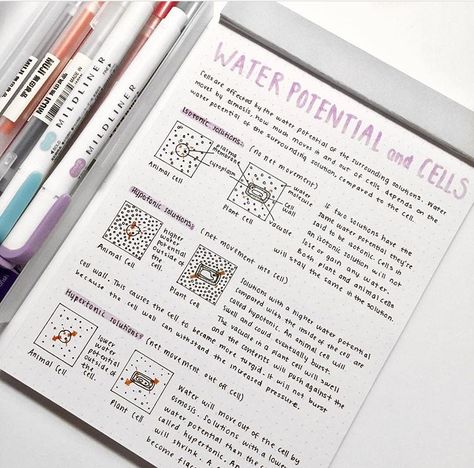 WATER POTENTIAL and CELLS
Cells are affected by the water potential of the surrounding solutions. Water
moves by osmosis, how much moves in and out of cells depends on the
water potential of the surrounding solution, compared to the cell.
Isotonic solutions (no net movement)
plasma membrane
cytoplasm
Animal Cell
water molecule
cell wall
vacuole
Plant Cell
If two solutions have the
same water potential they're
said to be isotonic. Cells in
an isotonic solution will not
lose or gain any water.
Both plant and animal cells
will stay the same in the solution.
Hypotonic solutions (net movement into cell)
higher
water
potential
outside of
the cell
Animal Cell
Plant Cell
Solutions with a higher water potential
compared with the inside of the cell are
called hypotonic. An animal cell will
swell and could eventually burst.
The vacuole in a plant cell will swell
and the contents will push against the
cell wall. This causes the cell to become more turgid. It will not burst
because the cell wall can withstand the increased pressure.
Hypertonic solutions (net movement out of cell)
lower
water
potential
outside of
the cell.
Animal Cell
Plant Cell
Water will move out of the cell by
osmosis. Solutions with a lower
water potential than the
called hypertonic.
will shrink. A
become flac
MUJI
MADE IN
MILDLINER
MILDLINER